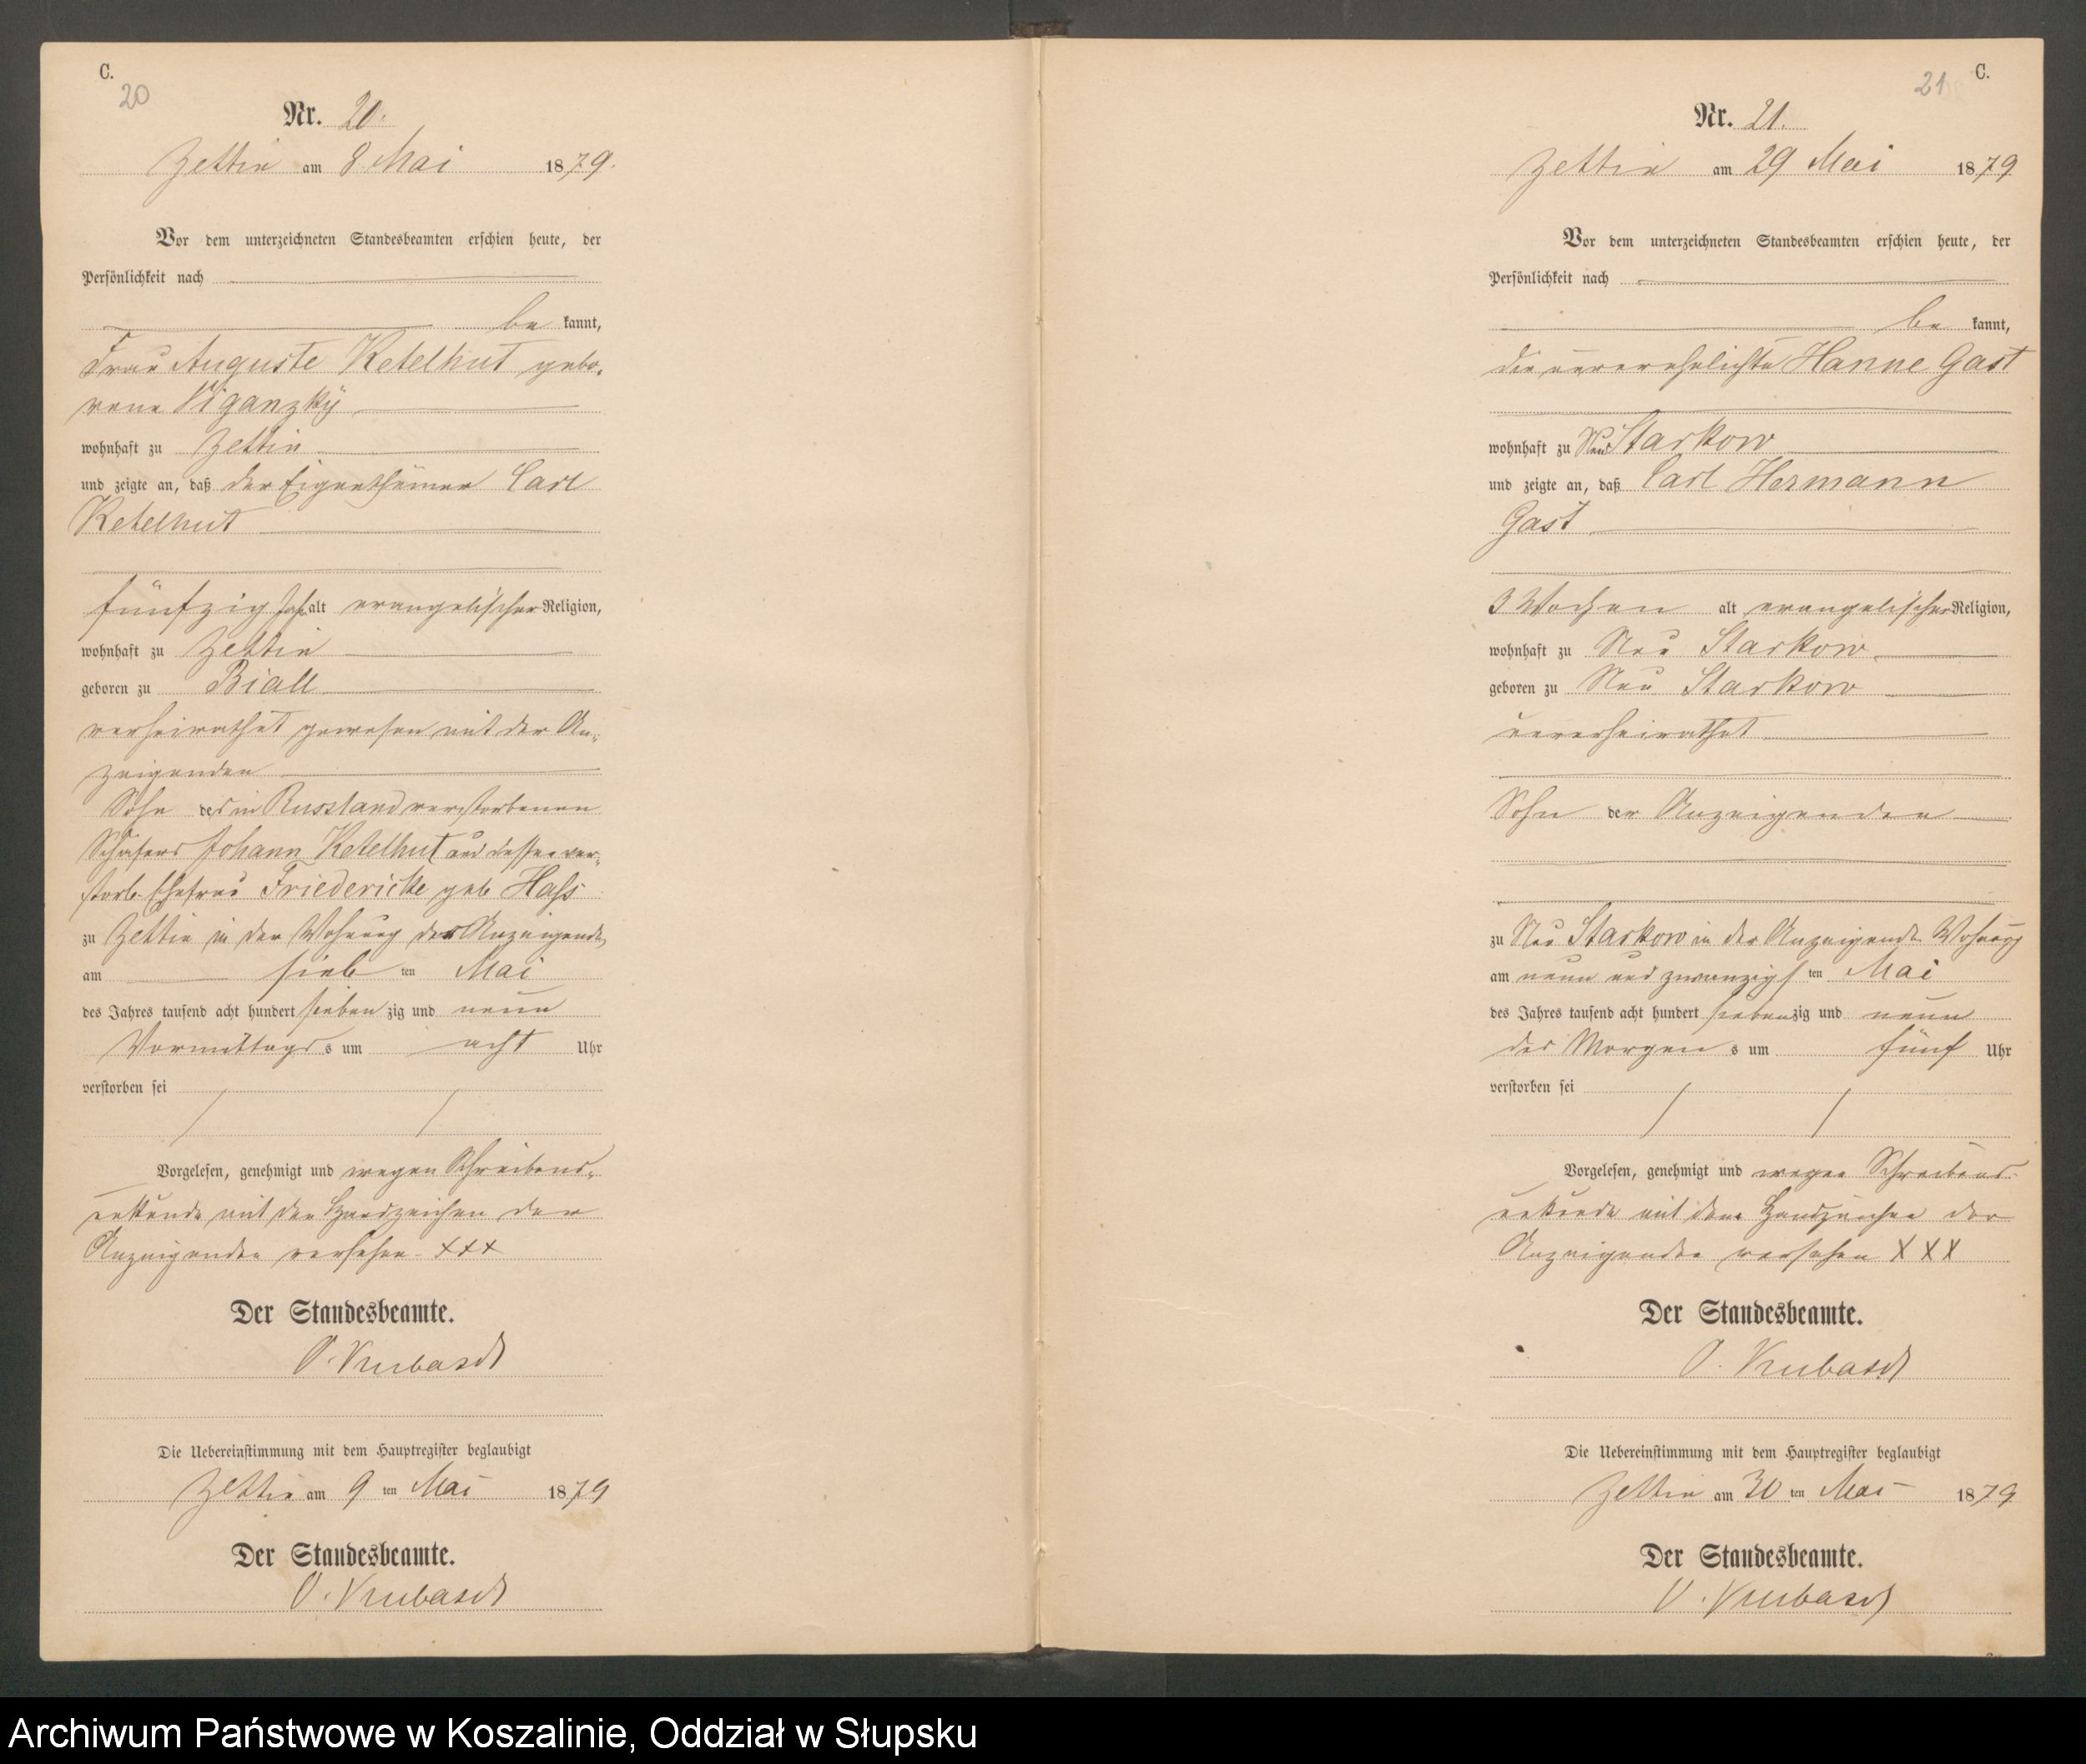 C.
20
Nr. 20.
Zettin am 8 Mai 1879.
Vor dem unterzeichneten Standesbeamten erschien heute, der
Persönlichkeit nach
be kannt,
Frau Auguste Ketelhut gebo-
rene Viganzky
wohnhaft zu Zettin
und zeigte an, daß der Eigenthümer Carl
Ketelhut
fünfzig Jahr alt evangelischer Religion,
wohnhaft zu Zettin
geboren zu Biall
verheirathet gewesen mit der An-
zeigenden
Sohn des in Russland verstorbenen
Schäfers Johann Ketelhut und dessen ver-
storb. Ehefrau Friedericke geb Hass
zu Zettin in der Wohnung der Anzeigenden
am sieb ten Mai
des Jahres tausend acht hundert sieben zig und neun
Vormittags s um acht Uhr
verstorben sei
Vorgelesen, genehmigt und wegen Schreibens-
unkunde mit den Handzeichen der
Anzeigenden versehen. +++
Der Standesbeamte.
O. Kubasch
Die Uebereinstimmung mit dem Hauptregister beglaubigt
Zettin am 9 ten Mai 1879
Der Standesbeamte.
O. Kubasch
C.
21
Nr. 21.
Zettin am 29 Mai 1879
Vor dem unterzeichneten Standesbeamten erschien heute, der
Persönlichkeit nach
be kannt,
die unverehelichte Hanne Gast
wohnhaft zu Neu Starkow
und zeigte an, daß Carl Hermann
Gast
3 Wochen alt evangelischer Religion,
wohnhaft zu Neu Starkow
geboren zu Neu Starkow
unverheirathet
Sohn der Anzeigenden
zu Neu Starkow in der Anzeigenden Wohnung
am neun und zwanzigs ten Mai
des Jahres tausend acht hundert sieben zig und neun
des Morgen s um fünf Uhr
verstorben sei
Vorgelesen, genehmigt und wegen Schreibens-
unkunde mit dem Handzeichen der
Anzeigenden versehen XXX
Der Standesbeamte.
O. Kubasch
Die Uebereinstimmung mit dem Hauptregister beglaubigt
Zettin am 30 ten Mai 1879
Der Standesbeamte.
O. Kubasch
Archiwum Państwowe w Koszalinie, Oddział w Słupsku